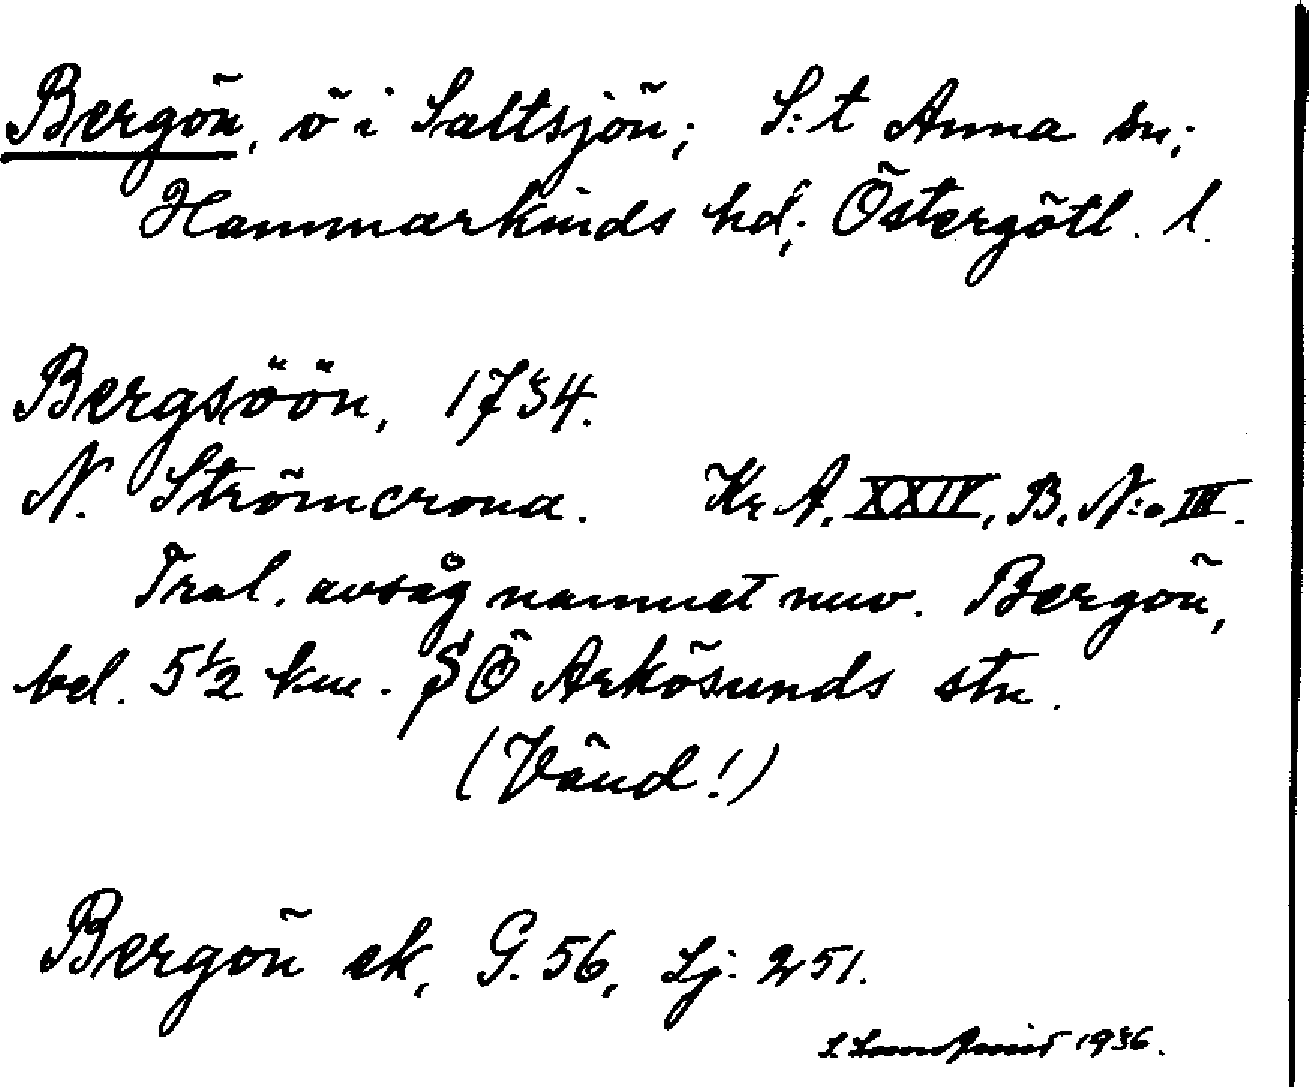 Bergön, ö i Saltsjön; S:t Anna sn;
Hammarkinds hd; Östergötl. l.
Bergsöön, 1734.
N. Strömcrona. Kr. A. XXIV, B. N:o III.
Trol. avsåg namnet nuv. Bergön,
bel. 5 1/2 km. S Ö Arkösunds stn.
(Vänd!)
Bergön ek, G. 56, Sj: 251.
1936.